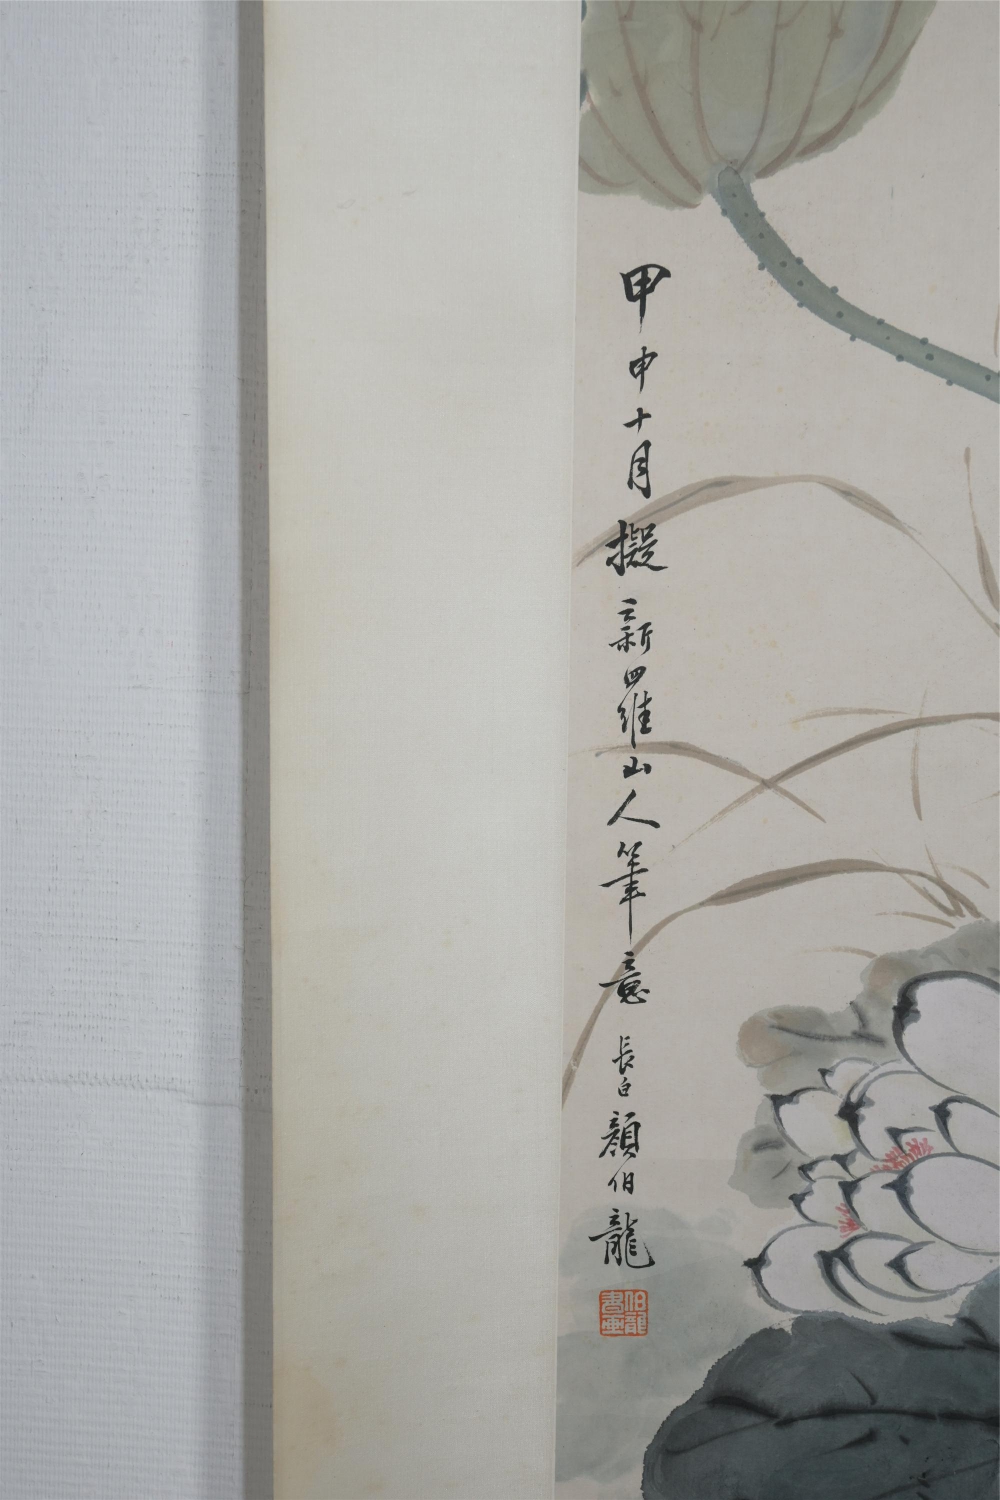 甲申十月擬新羅山人筆意長白顏伯龍
伯龍書畫